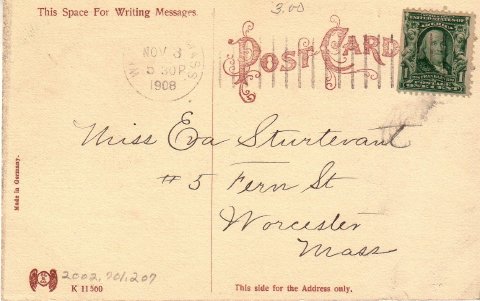 This Space For Writing Messages.
3.00
NOV 3
5 30 P
1908
MASS
POST CARD
UNITED STATES OF AMERICA
1
Miss Eva Sturtevant
#5 Fern St
Worcester
Mass
Made in Germany.
2002.701.207
K 11500
This side for the Address only.